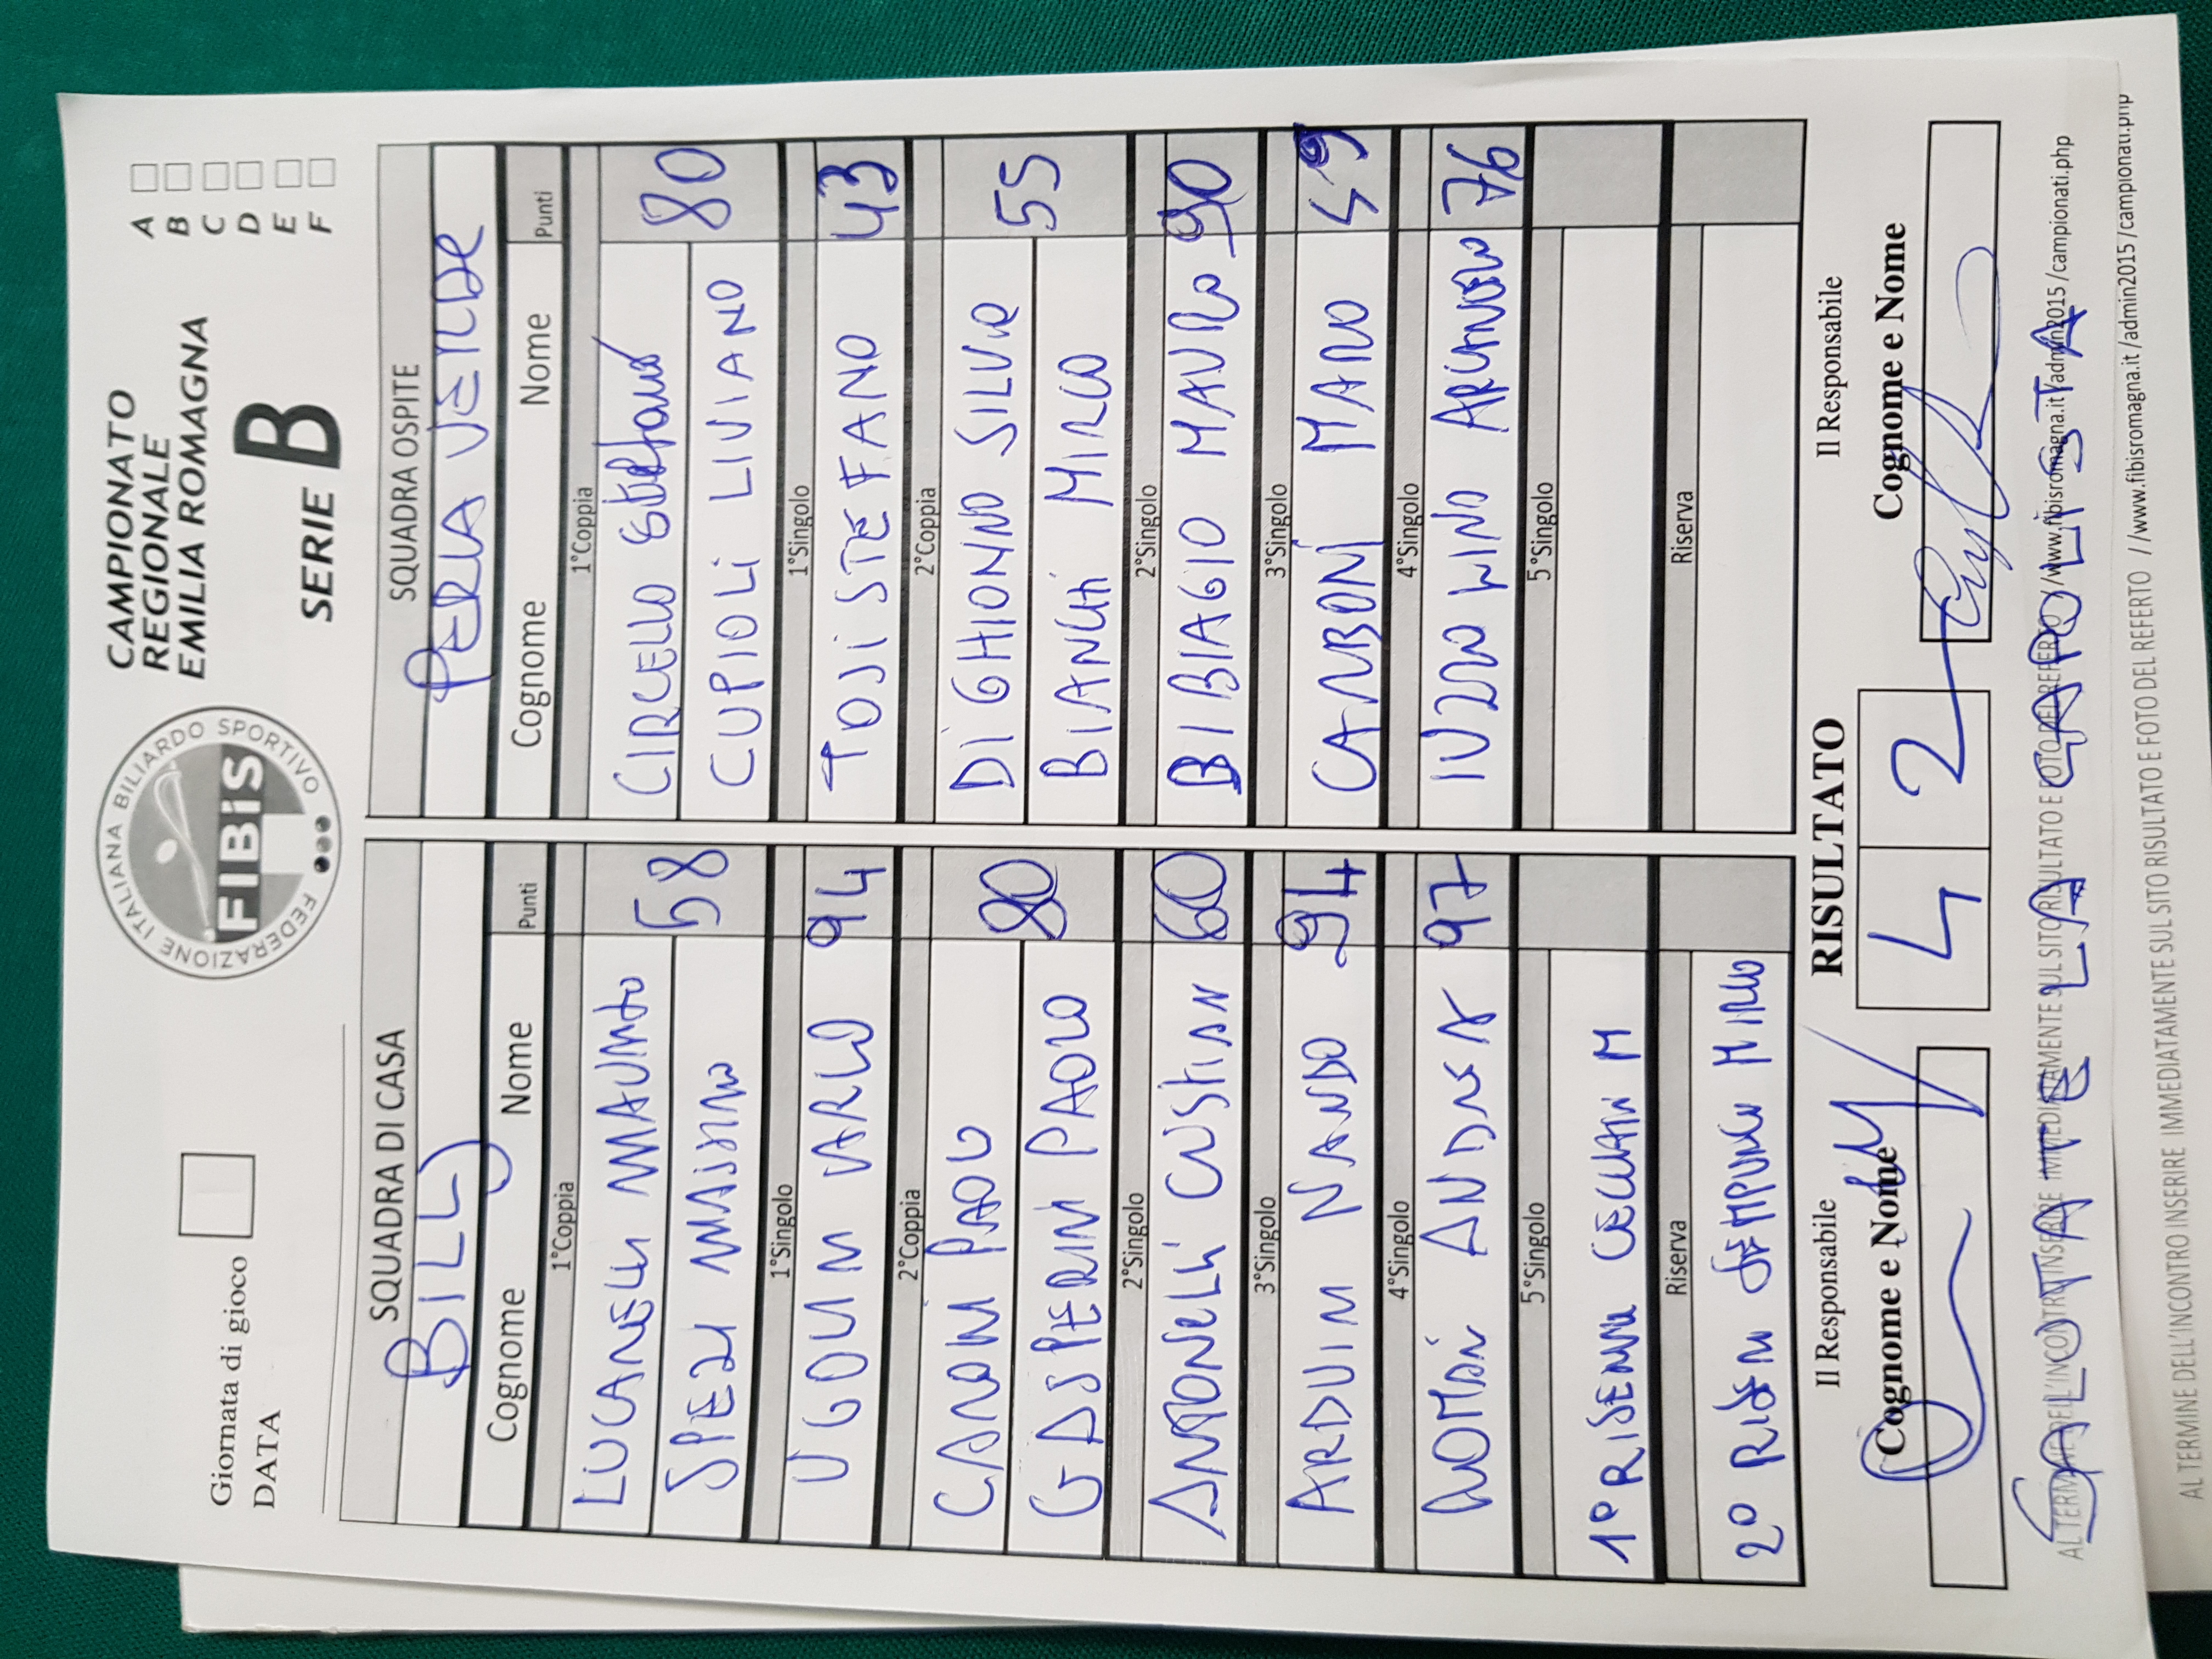 Giornata di gioco
DATA
FEDERAZIONE ITALIANA BILIARDO SPORTIVO
FIBiS
CAMPIONATO
REGIONALE
EMILIA ROMAGNA
SERIE B
A
B
C
D
E
F
SQUADRA DI CASA
BILLY
Cognome Nome Punti
1°Coppia
LUCANELLI MAURITO
SPEZI MASSIMO 58
1°Singolo
UGOLINI CARLO 94
2°Coppia
CANONI PAOLO
GASPERINI PAOLO 80
2°Singolo
ANTONELLI CRISTIAN 60
3°Singolo
ARDUINI NANDO 94
4°Singolo
ROMANI ANDREA 97
5°Singolo
1° RISERVA CECCHINI M
Riserva
2° RISERVA SEMPRUCCI MIRCO
SQUADRA OSPITE
PERLA VERDE
Cognome Nome Punti
1°Coppia
CIRCELLO Stefano
CUPIOLI LIVIANO 80
1°Singolo
TOSI STEFANO 43
2°Coppia
DI GHIONNO SILVIO
BIANCHI MIRCO 55
2°Singolo
DI BIAGIO MAURO 90
3°Singolo
CARBONI MARIO 49
4°Singolo
IUZZOLINO ARCANGELO 76
5°Singolo
Riserva
Il Responsabile
Cognome e Nome
RISULTATO
4 2
Il Responsabile
Cognome e Nome
AL TERMINE DELL'INCONTRO INSERIRE IMMEDIATAMENTE SUL SITO RISULTATO E FOTO DEL REFERTO //www.fibisromagna.it /admin2015 /campionati.php
SALUTATE LA CAPOLISTA
AL TERMINE DELL'INCONTRO INSERIRE IMMEDIATAMENTE SUL SITO RISULTATO E FOTO DEL REFERTO //www.fibisromagna.it /admin2015 /campionati.php